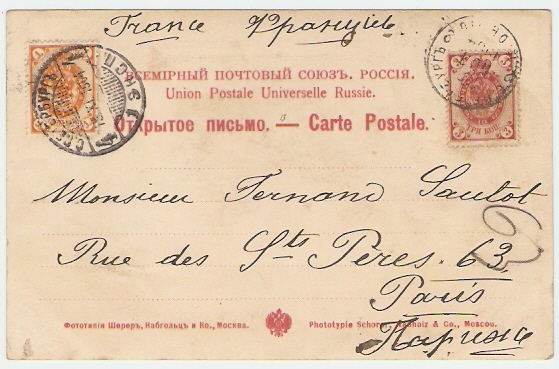 France Францiя
ВСЕМІРНЫЙ ПОЧТОВЫЙ СОЮЗЪ. РОССІЯ.
Union Postale Universelle Russie.
Открытое письмо. — Carte Postale.
3 3
ТРИ КОП.
Monsieur Fernand Sautot
Rue des Sts Pères. 63
Paris
Парижъ
Фототипія Шереръ, Набгольцъ и Ко., Москва.
Phototypie Scherer, Nabholz & Co., Moscou.